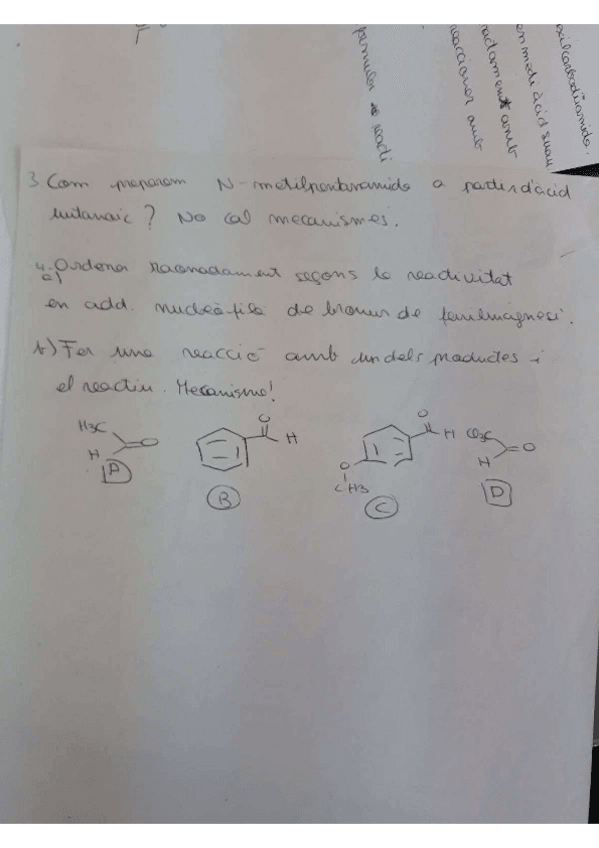 oxilcarbodiimida,
en medi àcid suau
reaccionar amb
3 Com preparem N-metilpentanamida a partir d'àcid
butanoic? No cal mecanismes.
4.- Ordenar raonadament segons la reactivitat
a)
en add. nucleòfila de bromur de fenilmagnesi.
b) Fer una reacció amb un dels productes i
el reactiu. Mecanisme!
H3C O H A
O H B
O H O CH3 C
Cl3C O H D